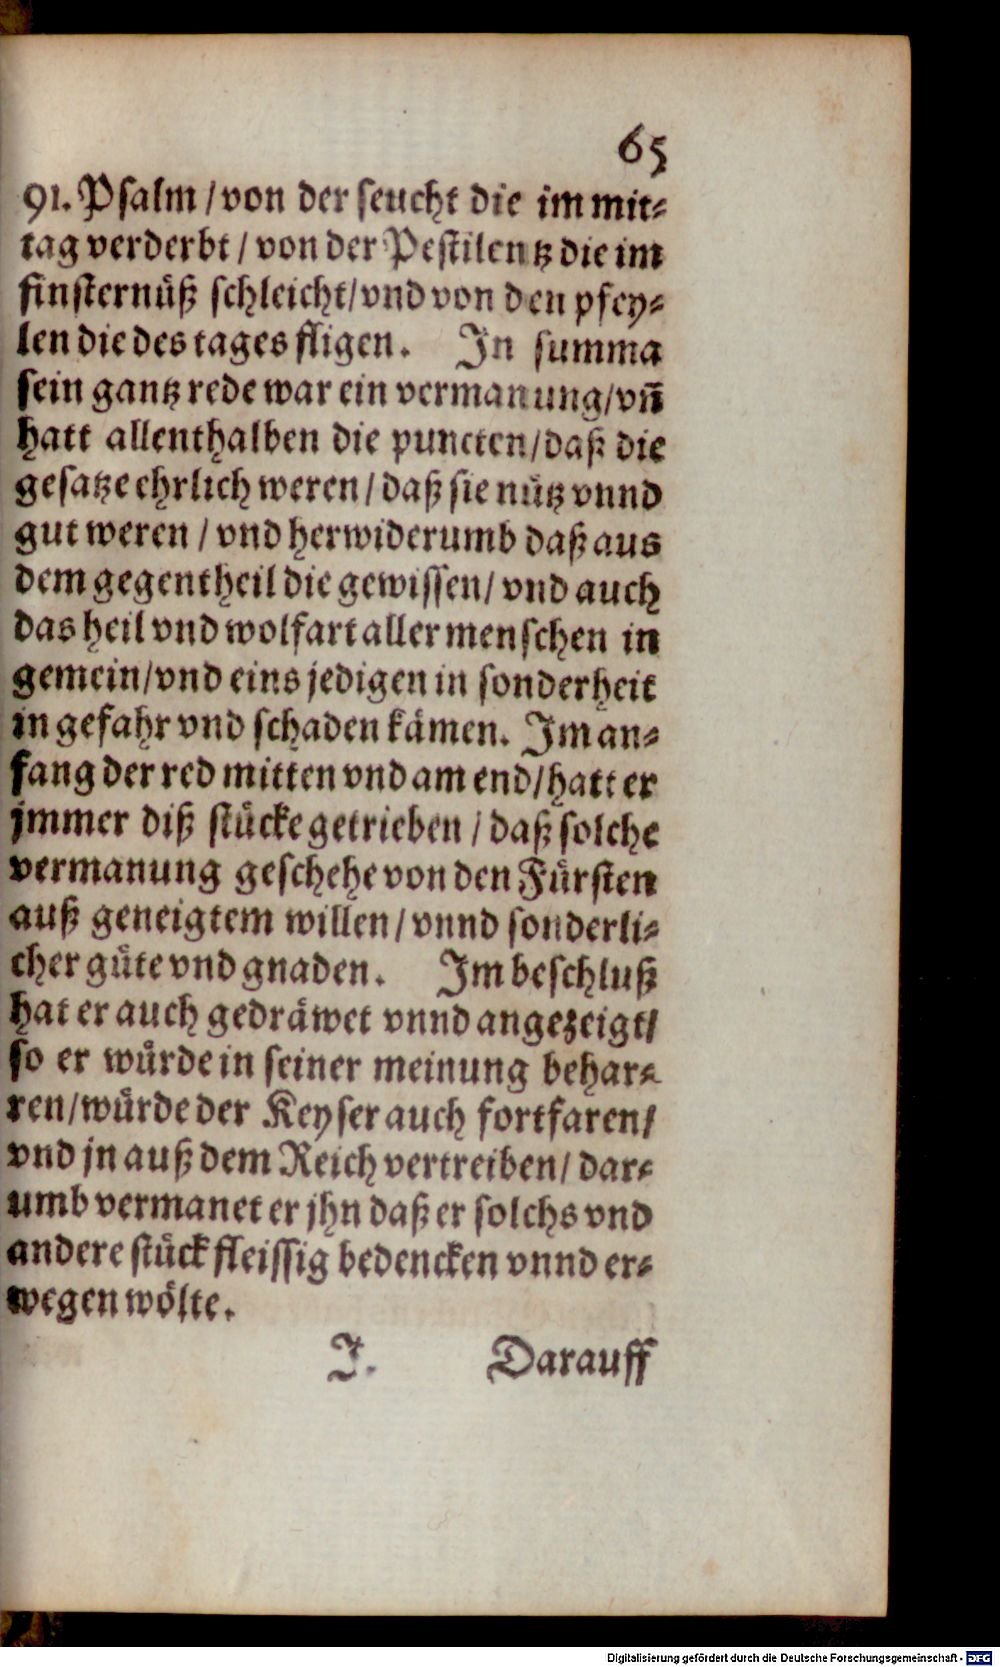 65
91. Psalm / von der seucht die im mit⸗
tag verderbt / von der Pestilentz die im
finsternüß schleicht / vnd von den pfey⸗
len die des tages fligen. In summa
sein gantz rede war ein vermanung / vn̄
hatt allenthalben die puncten / daß die
gesatze ehrlich weren / daß sie nütz vnnd
gut weren / vnd herwiderumb daß aus
dem gegentheil die gewissen / vnd auch
das heil vnd wolfart aller menschen in
gemein / vnd eins jedigen in sonderheit
in gefahr vnd schaden kämen. Im an⸗
fang der red mitten vnd am end / hatt er
jmmer diß stücke getrieben / daß solche
vermanung geschehe von den Fürsten
auß geneigtem willen / vnnd sonderli⸗
cher güte vnd gnaden. Im beschluß
hat er auch gedräwet vnnd angezeigt /
so er würde in seiner meinung behar⸗
ren / würde der Keyser auch fortfaren /
vnd jn auß dem Reich vertreiben / dar⸗
umb vermanet er jhn daß er solchs vnd
andere stück fleissig bedencken vnnd er⸗
wegen wölte.
I. Darauff
Digitalisierung gefördert durch die Deutsche Forschungsgemeinschaft - DFG